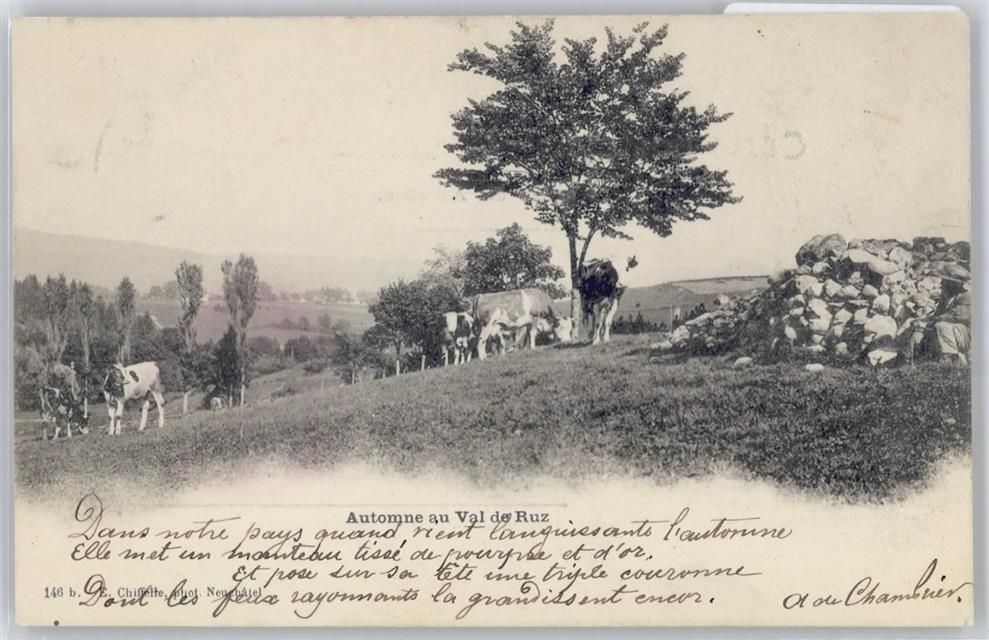 Automne au Val de Ruz
Dans notre pays quand vient languissante l'automne
Elle met un manteau tissé de pourpre et d'or.
Et pose sur sa tête une triple couronne
146 b. E. Chiffelle, phot. Neuchâtel
Dont les feux rayonnants la grandissent encor.
A de Chambrier.